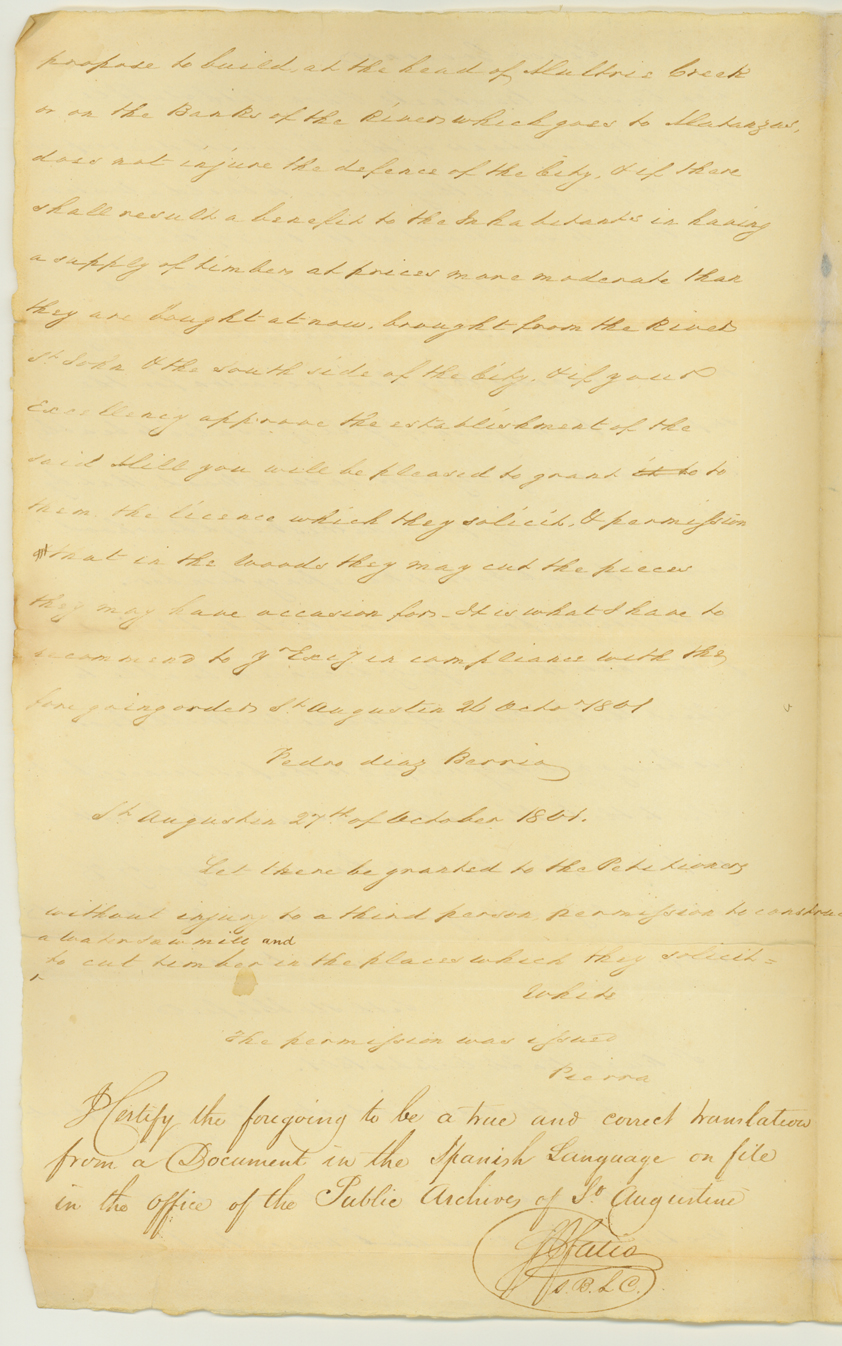 propose to build, at the head of Multrie Creek
or on the Banks of the River which goes to Matanzas,
does not injure the defence of the City, & if there
shall result a benefit to the Inhabitants in having
a supply of timber at prices more moderate than
they are bought at now, brought from the River
St John & the south side of the City, & if your
Excellency approve the establishment of the
said Mill you will be pleased to grant it to to
them the licence which they solicit, & permission
that in the woods they may cut the pieces
they may have occasion for - It is what I have to
recommend to yr Excy in compliance with the
foregoing order St Augustin 26 Octor 1801
Pedro diaz Berrio
St Augustin 27th of October 1801.
Let there be granted to the Petitioners
without injury to a third person permission to construc
a water saw mill and
to cut timber in the places which they solicit =
White
The permission was issued
Pierra
I Certify the foregoing to be a true and correct translation
from a Document in the Spanish Language on file
in the office of the Public Archives of St Augustine
Fatio
S. B. L C.